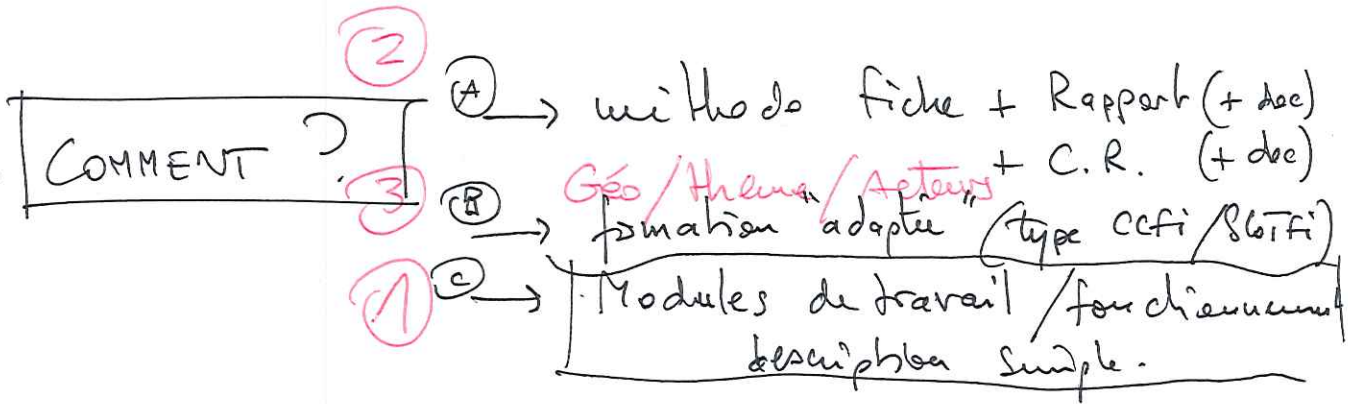 ②
COMMENT ?
Ⓐ → méthode fiche + Rapport (+ doc)
+ C.R. (+ doc)
③ Géo/thème/Acteurs
Ⓑ → formation "adaptée" (type CCFi/SLoTFi)
① Ⓒ → Modules de travail / fonctionnement
description simple.